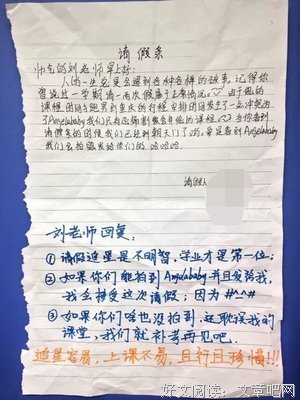 请假条
帅气的刘老师早上好：
人的一生总是会遇到各种各样的
记得你
曾说过一学期请一两次假属于正常情况。
由于您的
课程
跑男到重庆的行程安排
发生了一点冲突
了Angelababy我们只有
的课程
当你看到
请假条的时候我们已经到朝天门了哈。要是看到Angelababy
我们会拍照发给你们的 哈哈哈
请假人
刘老师回复：
① 请假追星是不明智，学业才是第一位；
② 如果你们能拍到Angelababy并且发给我，
我会接受这次请假；因为 #^_^#
③ 如果你们啥也没拍到，还耽误我的
课堂，我们就补考再见吧。
追星容易，上课不易，且行且珍惜!!!
好文阅读：文章吧网